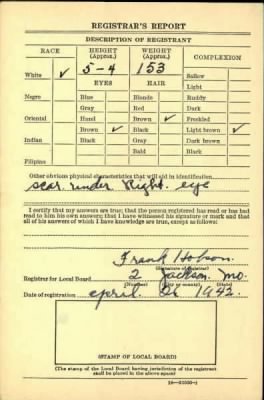 REGISTRAR'S REPORT
DESCRIPTION OF REGISTRANT
RACE HEIGHT (Approx.) WEIGHT (Approx.) COMPLEXION
White ✓ 5-4 153 Sallow
EYES HAIR Light
Negro Blue Blonde Ruddy
Gray Red Dark
Oriental Hazel Brown ✓ Freckled
Brown ✓ Black Light brown ✓
Indian Black Gray Dark brown
Bald Black
Filipino
Other obvious physical characteristics that will aid in identification
scar under Right eye
I certify that my answers are true; that the person registered has read or has had
read to him his own answers; that I have witnessed his signature or mark and that
all of his answers of which I have knowledge are true, except as follows:
Frank Hobson
(Signature of registrar)
Registrar for Local Board 2 Jackson Mo.
(Number) (City or county) (State)
Date of registration april 26 1942
(STAMP OF LOCAL BOARD)
(The stamp of the Local Board having jurisdiction of the registrant
shall be placed in the above space)